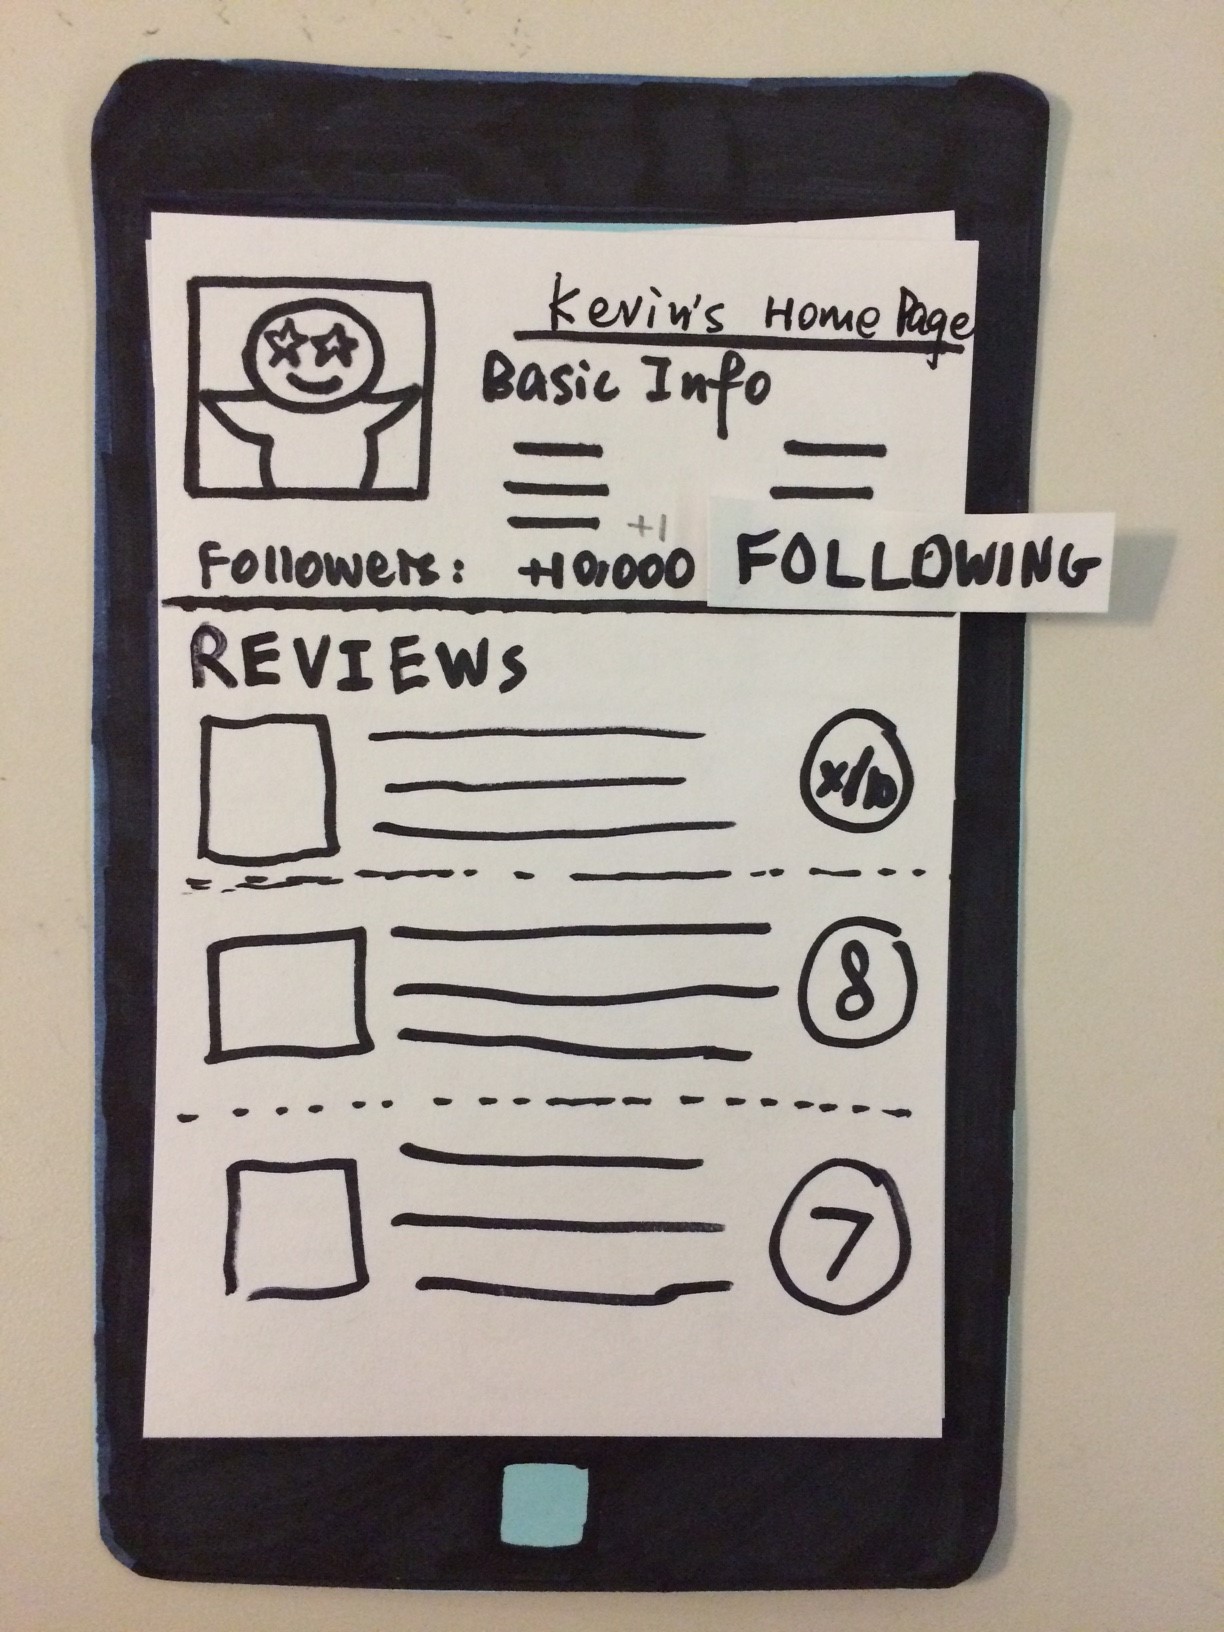 Kevin's Home Page
Basic Info
+1
Followers: +10,000 FOLLOWING
REVIEWS
x/10
8
7